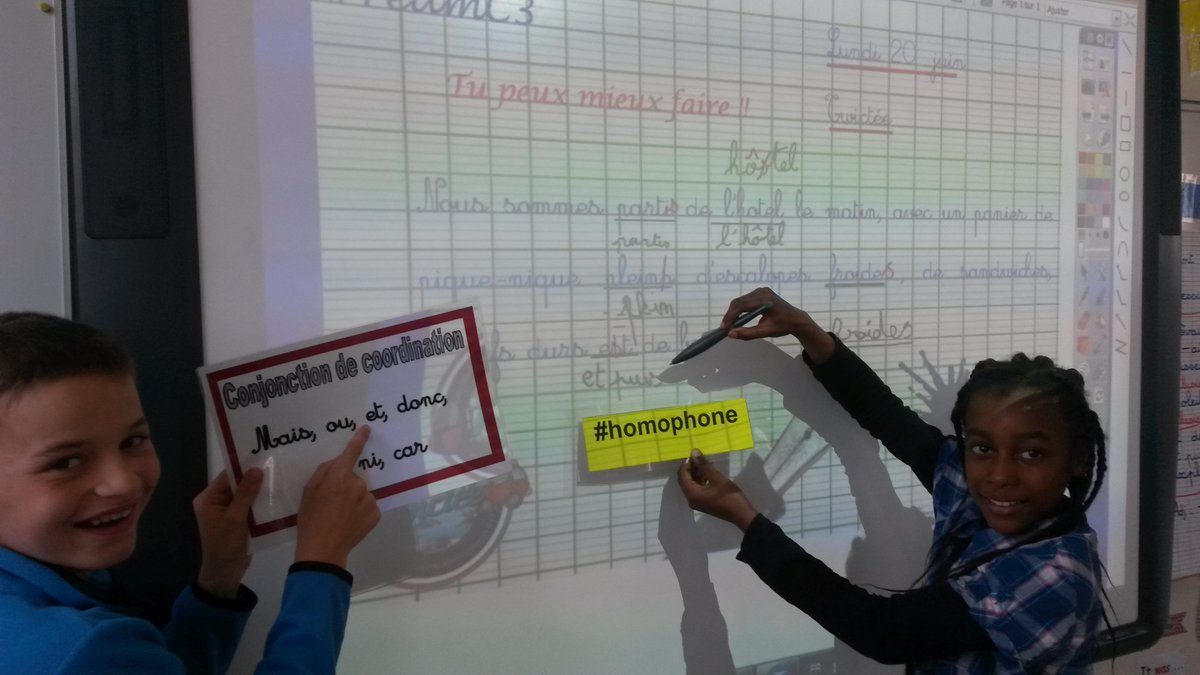 Page 1 sur 1 Ajuster
Lundi 20 juin
Tu peux mieux faire !!
Twictée
hôstel
Nous sommes partis de l'hotel le matin, avec un panier de
partis l'hôtel
pique-nique pleins d'escalopes froides, de sandwiches,
plein
durs est de froides
et puis
Conjonction de coordination
Mais, ou, et, donc,
ni, car
#homophone